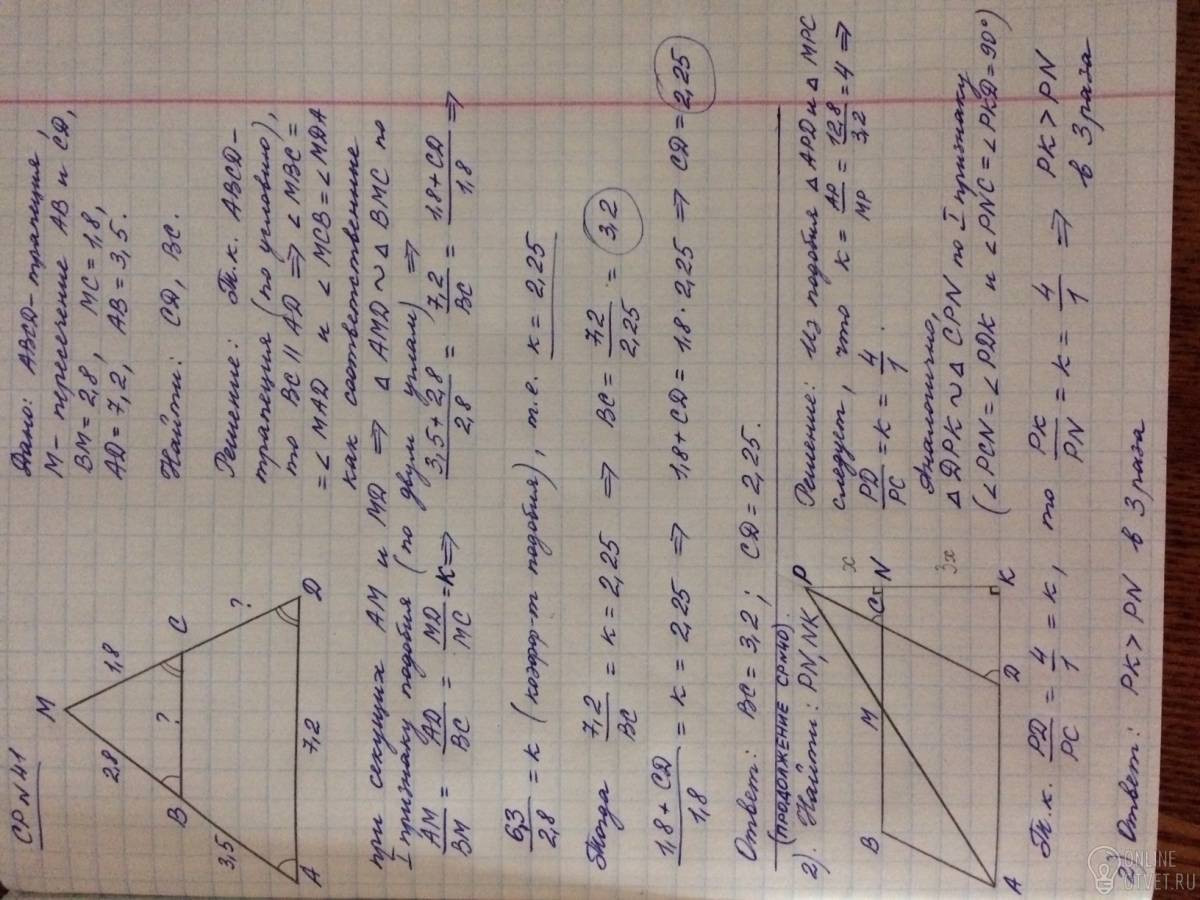 СР №41
M
2,8
1,8
B
?
C
3,5
?
A
7,2
D
Дано: ABCD - трапеция,
M - пересечение AB и CD,
BM = 2,8, MC = 1,8,
AD = 7,2, AB = 3,5.
Найти: CD, BC.
Решение: Т.к. ABCD -
трапеция (по условию),
то BC || AD => ∠MBC =
= ∠MAD и ∠MCB = ∠MDA
как соответственные
при секущих AM и MD => △AMD ~ △BMC по
I признаку подобия (по двум углам) =>
AM/BM = AD/BC = MD/MC = K => (3,5+2,8)/2,8 = 7,2/BC = (1,8+CD)/1,8 =>
6,3/2,8 = K (коэфф-т подобия), т.е. K = 2,25
Тогда 7,2/BC = K = 2,25 => BC = 7,2/2,25 = 3,2
(1,8+CD)/1,8 = K = 2,25 => 1,8+CD = 1,8·2,25 => CD = 2,25
Ответ: BC = 3,2; CD = 2,25.
(ПРОДОЛЖЕНИЕ СР №40).
2). Найти: PN, NK
P
x
B
M
C
N
3x
A
D
K
Решение: Из подобия △APD и △MPC
следует, что K = AP/MP = 12,8/3,2 = 4 =>
PD/PC = K = 4/1.
Аналогично,
△DPK ~ △CPN по I признаку
(∠PCN = ∠PDK и ∠PNC = ∠PKD = 90°)
Т.к. PD/PC = 4/1 = K, то PK/PN = K = 4/1 => PK > PN
в 3 раза
2) Ответ: PK > PN в 3 раза
ONLINE
OTVET.RU